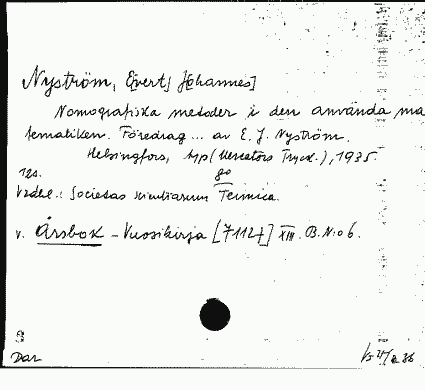 Nyström, E[vert] J[ohannes]
Nomografiska metoder i den använda ma
tematiken. Föredrag ... av E. J. Nyström.
Helsingfors, typ (Mercators Tryck.), 1935.
12s. 80
Vzdhl.: Societas scientiarum Fennica.
v. Årsbok - Vuosikirja [7112+] XIII. B. N:o 6.
Dar